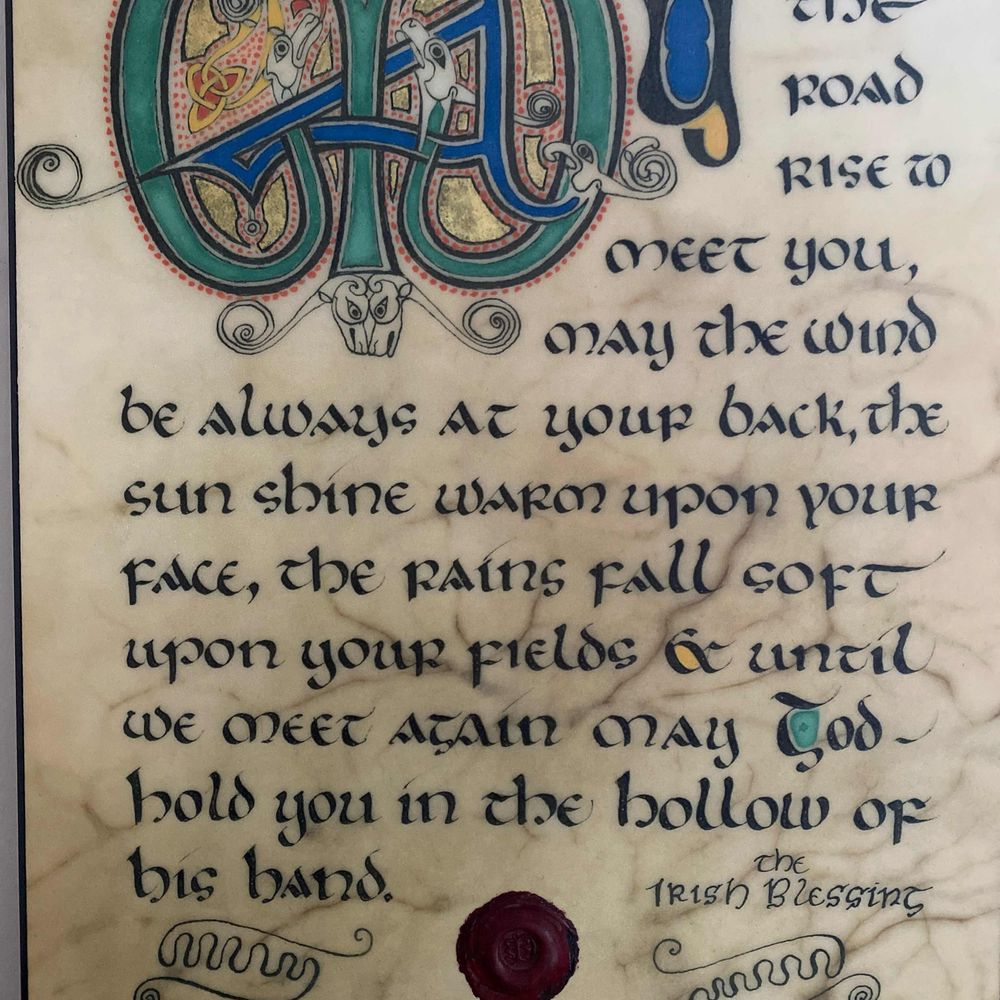 May the
road
rise to
meet you,
may the wind
be always at your back, the
sun shine warm upon your
face, the rains fall soft
upon your fields & until
we meet again may God
hold you in the hollow of
his hand.
the
Irish Blessing